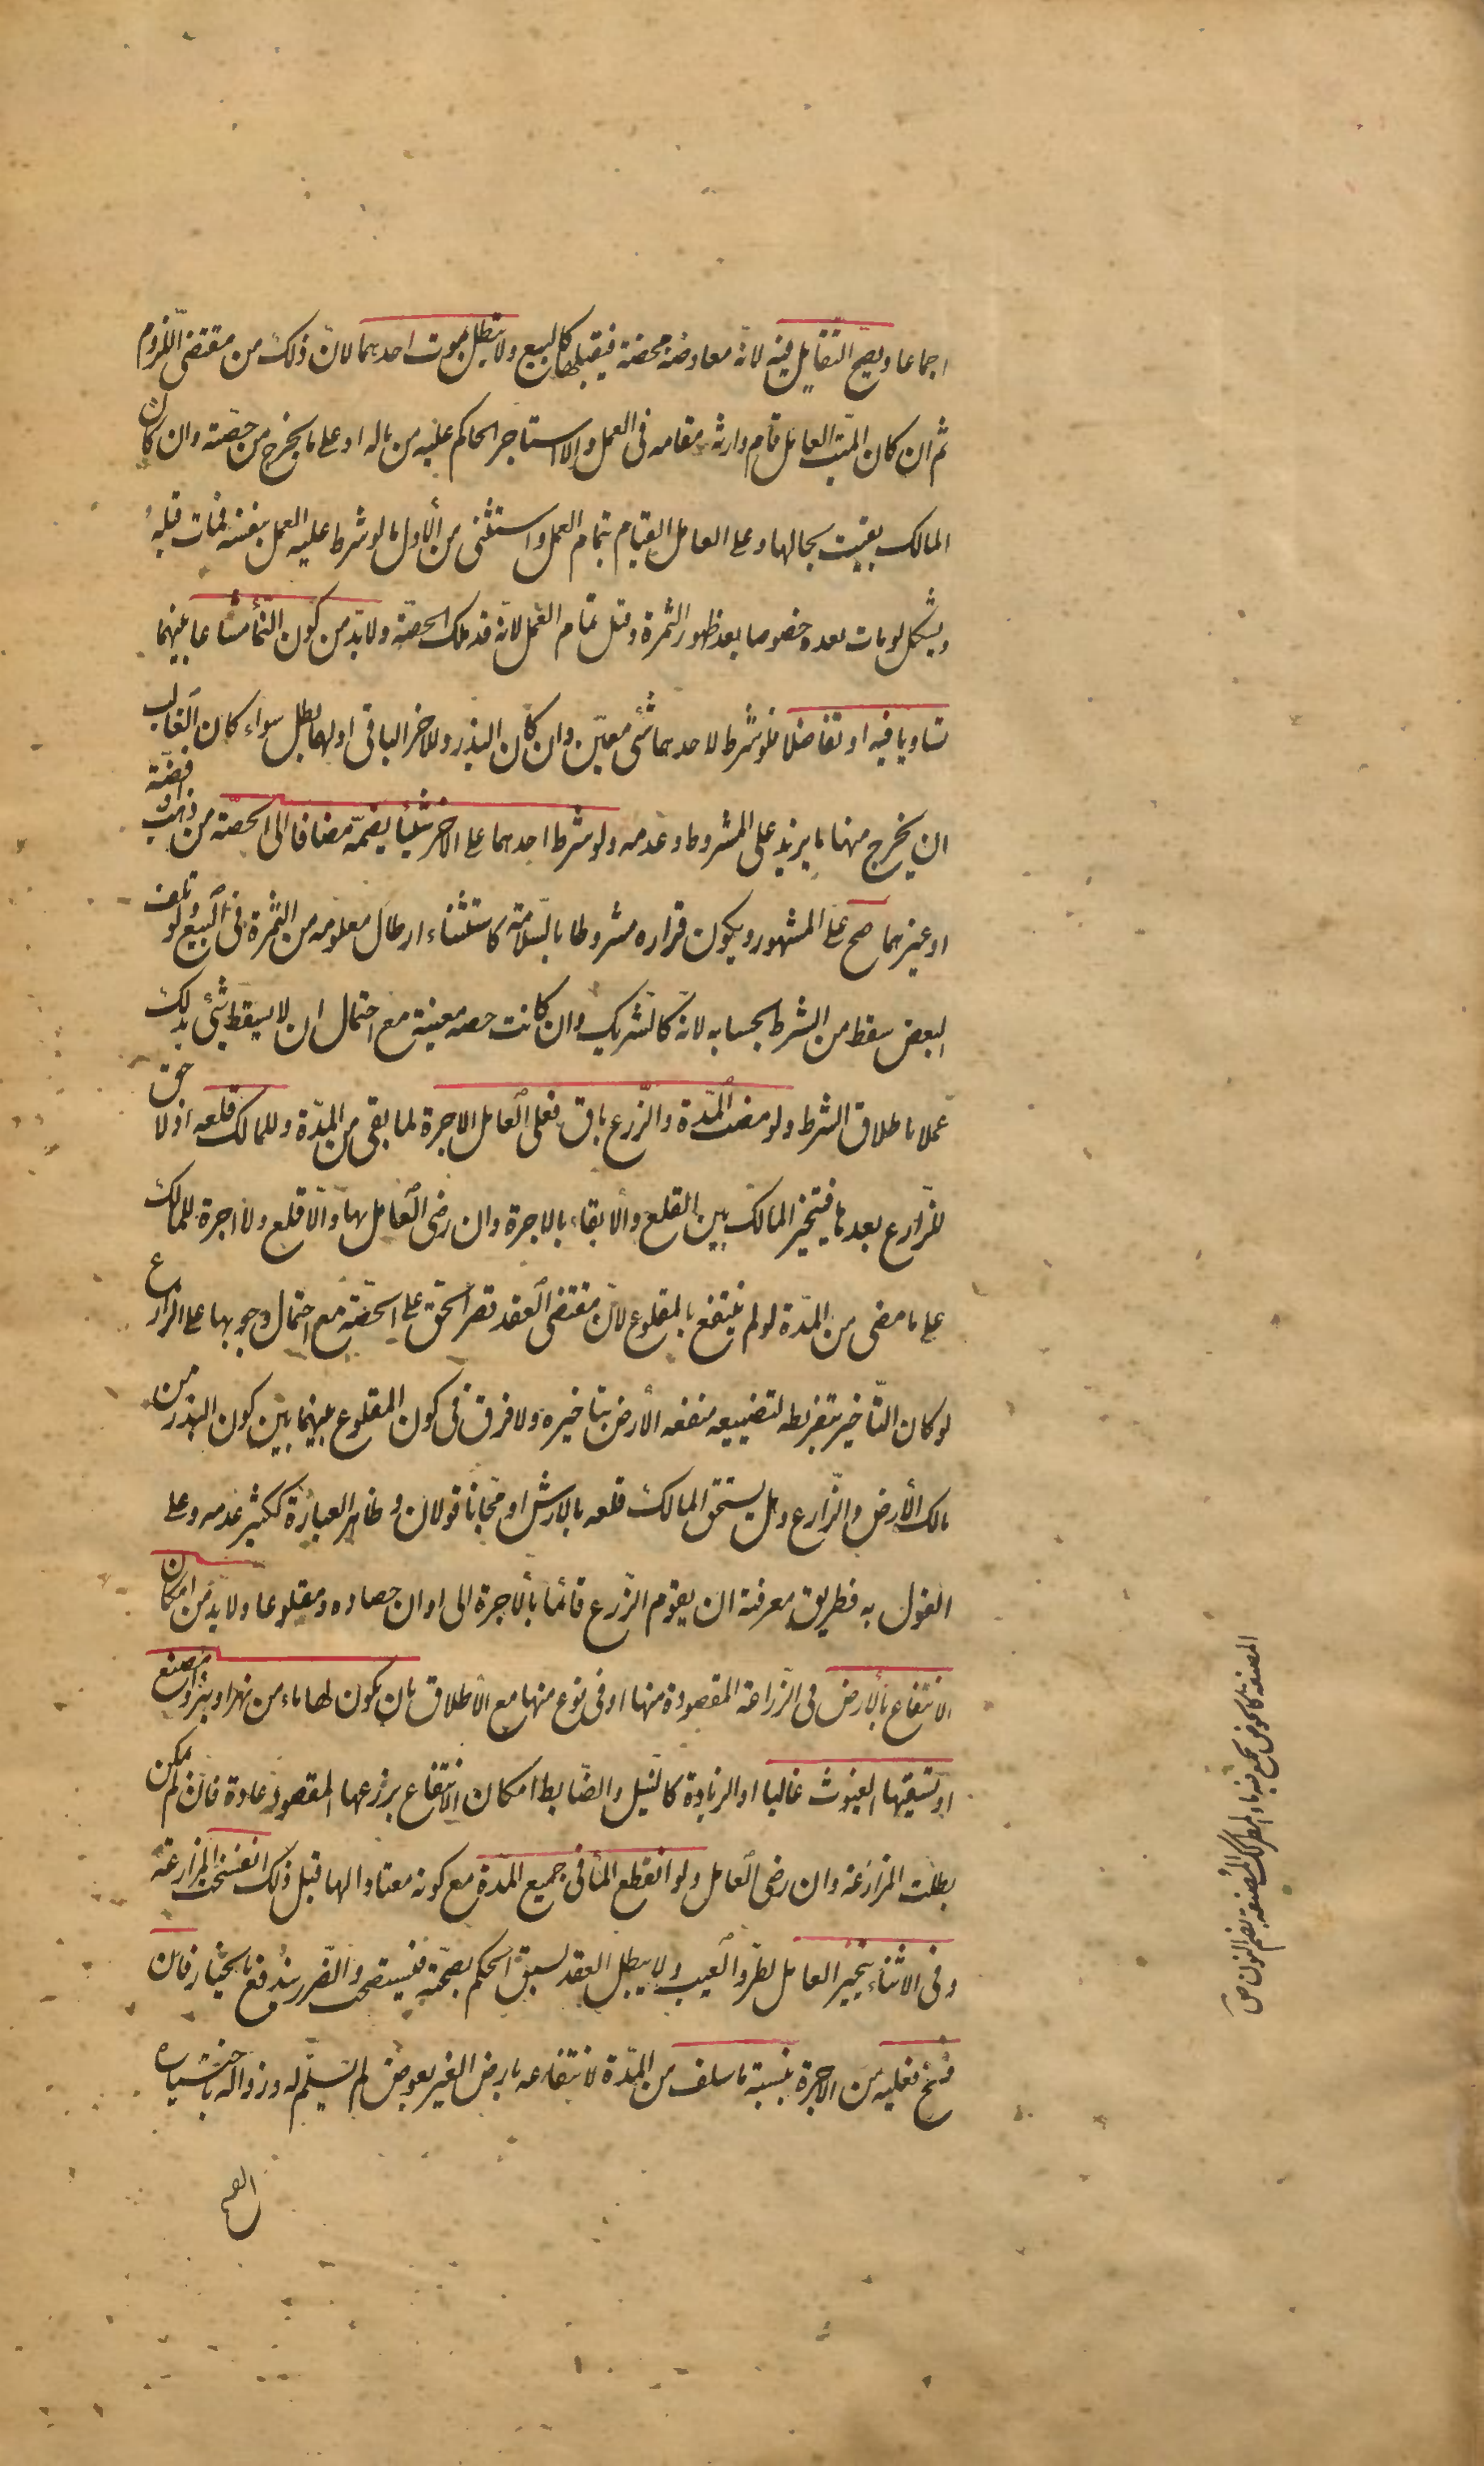 اجماعا ويصح التقايل فيه لانه معاوضة محضة فيقبلها كالبيع ولا تبطل بموت احدهما لان ذلك من مقتضى اللزوم
ثم ان كان الميت العامل قام وارثه مقامه فى العمل والا استاجر الحاكم عليه من ماله او على ما يخرج من حصته وان كان
المالك بقيت بحالها وعلى العامل القيام بتمام العمل واستثنى من الاول ما لو شرط عليه العمل بنفسه فمات قبله
ويشكل لو مات بعده خصوصا بعد ظهور الثمرة وقبل تمام العمل لانه قد ملك الحصة ولا بد من كون النماء مشاعا بينهما
تساويا فيه او تفاضلا فلو شرط لاحدهما شئ معين وان كان البذر وللاخر الباقى اولهما بطل سواء كان الغالب
ان يخرج منها ما يزيد على المشروط وعدمه ولو شرط احدهما على الاخر شيئا يضمه مضافا الى الحصة من ذهب او فضة
او غيرهما صح على المشهور ويكون قراره مشروطا بالسلامة كاستثناء ارطال معلومه من الثمرة فى البيع ولو تلف
البعض سقط من الشرط بحسابه لانه كالشريك وان كانت حصه معينة مع احتمال ان لا يسقط شئ بذلك
عملا باطلاق الشرط ولو مضت المدة والزرع باق فعلى العامل الاجرة لما بقى من المدة وللمالك قلعه اذ لا حق
للزارع بعدها فيتخير المالك بين القلع والابقاء بالاجرة وان رضى العامل بها والا قلع ولا اجرة للمالك
على ما مضى من المدة لو لم ينتفع بالمقلوع لان مقتضى العقد قصر الحق على الحصة مع احتمال وجوبها على الزارع
لو كان التاخير بتفريطه لتضييعه منفعه الارض بتاخيره ولا فرق فى كون المقلوع بينهما بين كون البذر من
مالك الارض والزارع وهل يستحق المالك قلعه بالارش او مجانا قولان وظاهر العبارة ككثير عدمه وعلى
القول به فطريق معرفته ان يقوم الزرع قائما بالاجرة الى اوان حصاده ومقلوعا ولا بد من امكان
الانتفاع بالارض فى الزراعة المقصودة منها او فى نوع منها مع الاطلاق بان يكون لها ماء من نهر او بئر او مصنع
او تسقيها الغيوث غالبا او الزيادة كالنيل والضابط امكان الانتفاع بزرعها المقصود عادة فان لم يمكن
بطلت المزارعة وان رضى العامل ولو انقطع الماء فى جميع المدة مع كونه معتادا لها قبل ذلك انفسخت المزارعة
وفى الاثناء يتخير العامل لطرو العيب ولا يبطل العقد لسبق الحكم بصحته فيستصحب والضرر يندفع بالخيار فان
فسخ فعليه من الاجرة بنسبة ما سلف من المدة لانتفاعه بارض الغير بعوض لم يسلم له وزواله باختياره
المصنعة كالحوض يجمع فيه ماء المطر وكذلك المصنعة بضم النون ص